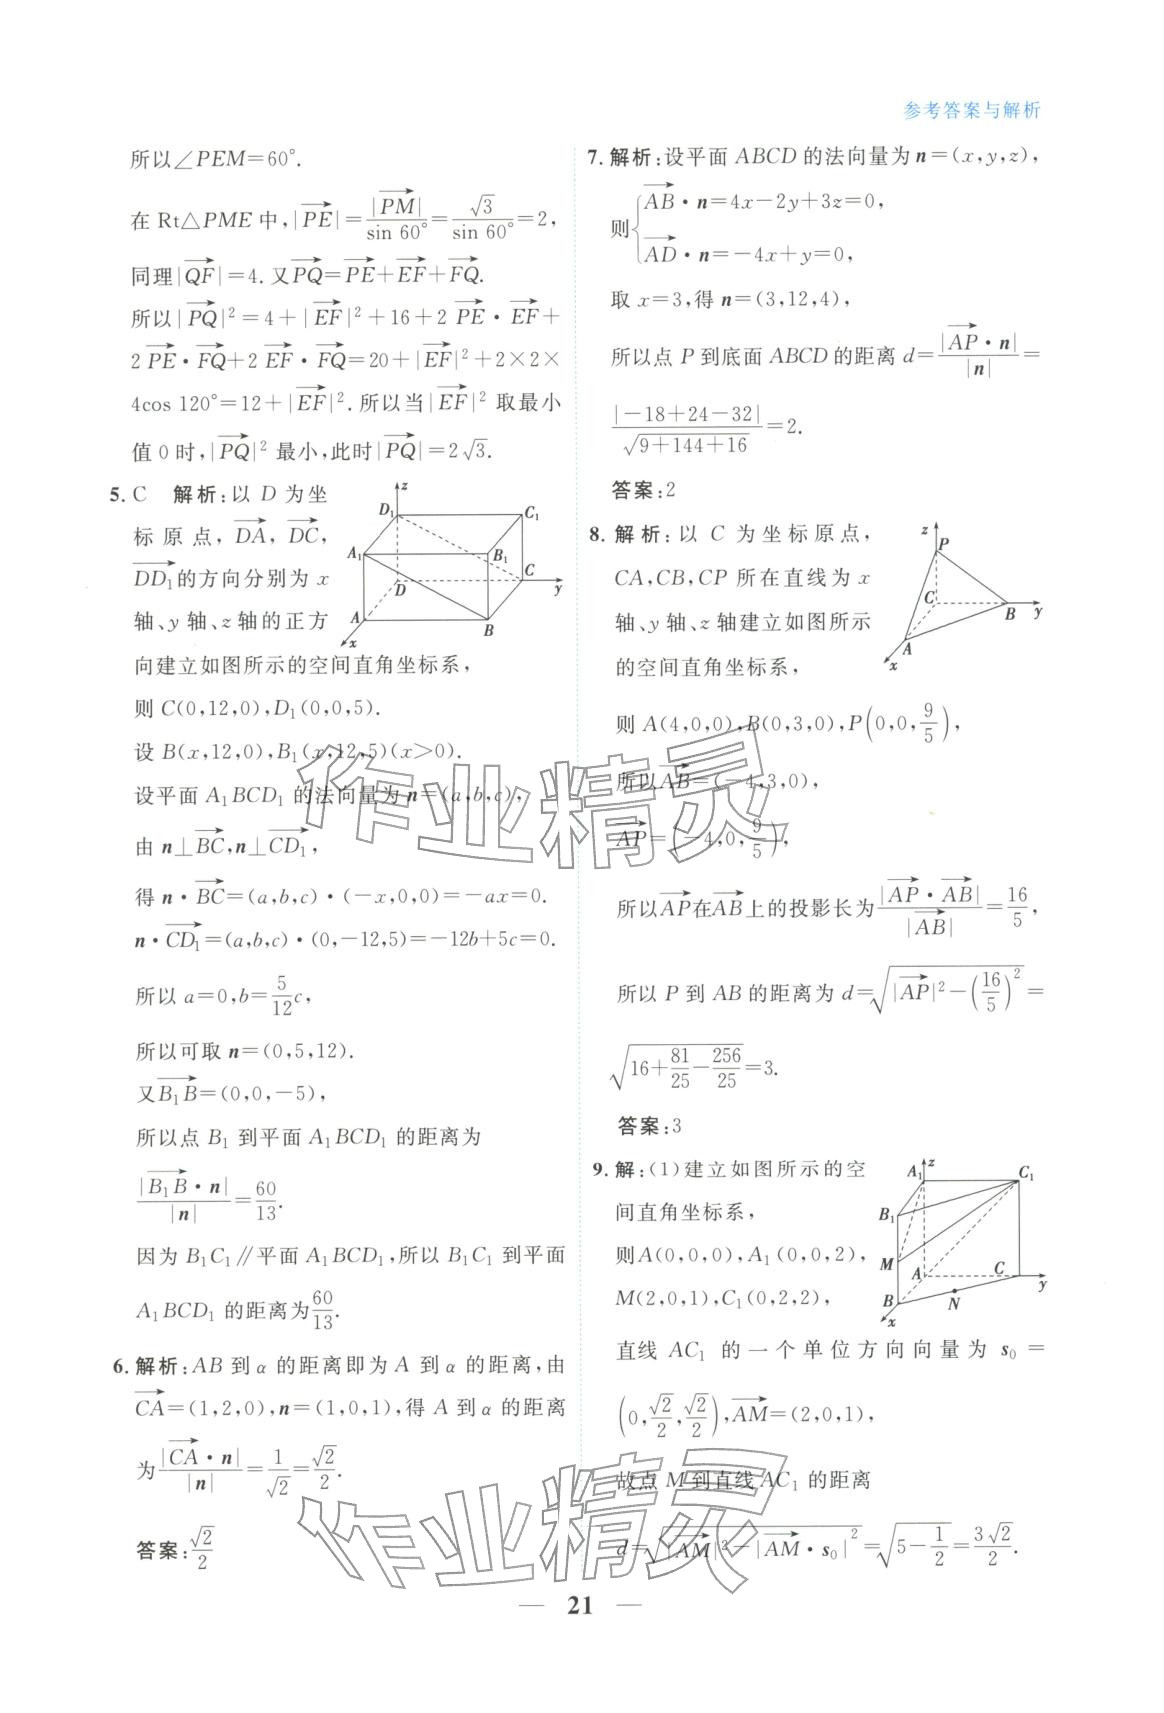 参考答案与解析
所以∠PEM=60°.
在 Rt△PME 中,|$\overrightarrow{PE}$|=$\frac{|\overrightarrow{PM}|}{\sin 60°}$=$\frac{\sqrt{3}}{\sin 60°}$=2,
同理|$\overrightarrow{QF}$|=4.又$\overrightarrow{PQ}$=$\overrightarrow{PE}$+$\overrightarrow{EF}$+$\overrightarrow{FQ}$.
所以|$\overrightarrow{PQ}$|²=4+|$\overrightarrow{EF}$|²+16+2$\overrightarrow{PE}$·$\overrightarrow{EF}$+
2$\overrightarrow{PE}$·$\overrightarrow{FQ}$+2$\overrightarrow{EF}$·$\overrightarrow{FQ}$=20+|$\overrightarrow{EF}$|²+2×2×
4cos 120°=12+|$\overrightarrow{EF}$|².所以当|$\overrightarrow{EF}$|²取最小
值 0 时,|$\overrightarrow{PQ}$|²最小,此时|$\overrightarrow{PQ}$|=2$\sqrt{3}$.
5. C 解析:以 D 为坐
标原点,$\overrightarrow{DA}$,$\overrightarrow{DC}$,
$\overrightarrow{DD_1}$的方向分别为 x
轴、y 轴、z 轴的正方
向建立如图所示的空间直角坐标系,
z
D₁
C₁
A₁
B₁
D
C
y
A
B
x
则 C(0,12,0),D₁(0,0,5).
设 B(x,12,0),B₁(x,12,5)(x>0).
设平面 A₁BCD₁ 的法向量为 n=(a,b,c),
由 n⊥$\overrightarrow{BC}$,n⊥$\overrightarrow{CD_1}$,
得 n·$\overrightarrow{BC}$=(a,b,c)·(-x,0,0)=-ax=0.
n·$\overrightarrow{CD_1}$=(a,b,c)·(0,-12,5)=-12b+5c=0.
所以 a=0,b=$\frac{5}{12}$c,
所以可取 n=(0,5,12).
又$\overrightarrow{B_1B}$=(0,0,-5),
所以点 B₁ 到平面 A₁BCD₁ 的距离为
$\frac{|\overrightarrow{B_1B}·n|}{|n|}$=$\frac{60}{13}$.
因为 B₁C₁∥平面 A₁BCD₁,所以 B₁C₁ 到平面
A₁BCD₁ 的距离为$\frac{60}{13}$.
6. 解析:AB 到 α 的距离即为 A 到 α 的距离,由
$\overrightarrow{CA}$=(1,2,0),n=(1,0,1),得 A 到 α 的距离
为$\frac{|\overrightarrow{CA}·n|}{|n|}$=$\frac{1}{\sqrt{2}}$=$\frac{\sqrt{2}}{2}$.
答案:$\frac{\sqrt{2}}{2}$
7. 解析:设平面 ABCD 的法向量为 n=(x,y,z),
则{$\overrightarrow{AB}$·n=4x-2y+3z=0,
$\overrightarrow{AD}$·n=-4x+y=0,
取 x=3,得 n=(3,12,4),
所以点 P 到底面 ABCD 的距离 d=$\frac{|\overrightarrow{AP}·n|}{|n|}$=
$\frac{|-18+24-32|}{\sqrt{9+144+16}}$=2.
答案:2
8. 解析:以 C 为坐标原点,
CA,CB,CP 所在直线为 x
轴、y 轴、z 轴建立如图所示
的空间直角坐标系,
z
P
C
B
y
A
x
则 A(4,0,0),B(0,3,0),P(0,0,$\frac{9}{5}$),
所以$\overrightarrow{AB}$=(-4,3,0),
$\overrightarrow{AP}$=(-4,0,$\frac{9}{5}$),
所以$\overrightarrow{AP}$在$\overrightarrow{AB}$上的投影长为$\frac{|\overrightarrow{AP}·\overrightarrow{AB}|}{|\overrightarrow{AB}|}$=$\frac{16}{5}$,
所以 P 到 AB 的距离为 d=$\sqrt{|\overrightarrow{AP}|^2-(\frac{16}{5})^2}$=
$\sqrt{16+\frac{81}{25}-\frac{256}{25}}$=3.
答案:3
9. 解:(1)建立如图所示的空
间直角坐标系,
则A(0,0,0),A₁(0,0,2),
M(2,0,1),C₁(0,2,2),
A₁
z
C₁
B₁
M
A
C
y
B
N
x
直线 AC₁ 的一个单位方向向量为 s₀=
(0,$\frac{\sqrt{2}}{2}$,$\frac{\sqrt{2}}{2}$),$\overrightarrow{AM}$=(2,0,1),
故点 M 到直线 AC₁ 的距离
d=$\sqrt{|\overrightarrow{AM}|^2-|\overrightarrow{AM}·s_0|^2}$=$\sqrt{5-\frac{1}{2}}$=$\frac{3\sqrt{2}}{2}$.
作业精灵
作业精灵
— 21 —